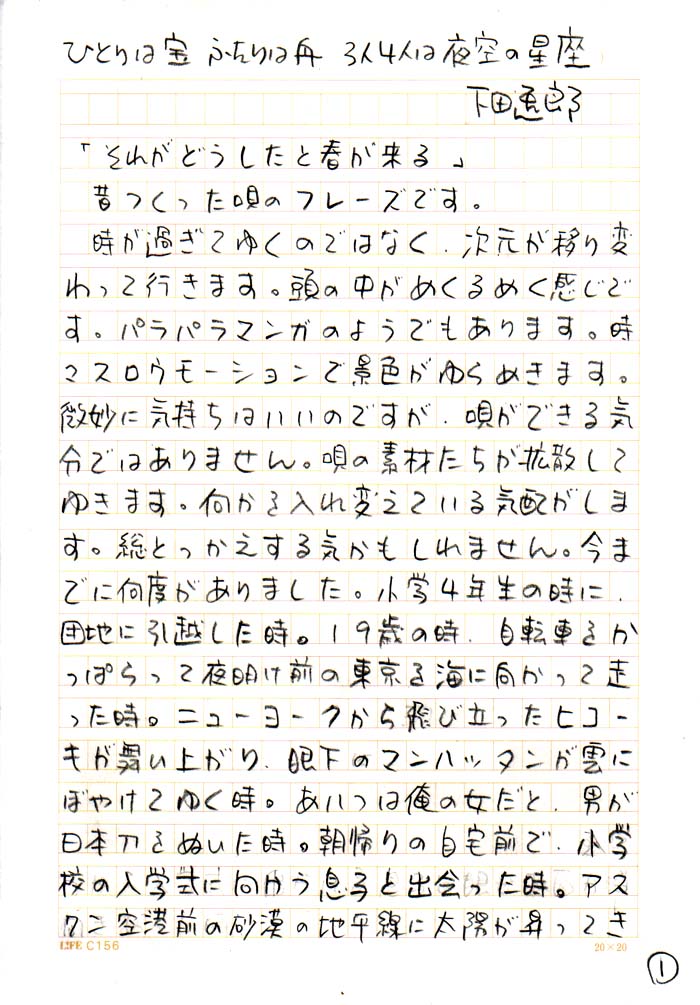 ひとりは宝 ふたりは舟 3人4人は夜空の星座
下田逸郎
「それがどうしたと春が来る」
昔つくった唄のフレーズです。
時が過ぎてゆくのではなく、次元が移り変
わって行きます。頭の中がめくるめく感じで
す。パラパラマンガのようでもあります。時
々スロウモーションで景色がゆらめきます。
微妙に気持ちはいいのですが、唄ができる気
分ではありません。唄の素材たちが拡散して
ゆきます。何かを入れ変えている気配がしま
す。総とっかえする気かもしれません。今ま
でに何度がありました。小学4年生の時に、
団地に引越した時。19歳の時、自転車をか
っぱらって夜明け前の東京を海に向かって走
った時。ニューヨークから飛び立ったヒコー
キが舞い上がり、眼下のマンハッタンが雲に
ぼやけてゆく時。あいつは俺の女だと、男が
日本刀をぬいた時。朝帰りの自宅前で、小学
校の入学式に向かう息子と出会った時。アス
ワン空港前の砂漠の地平線に太陽が昇ってき
LIFE C156
20×20
1